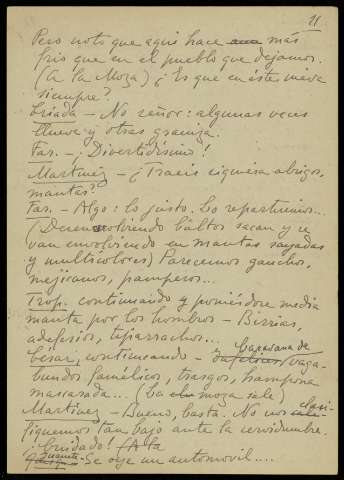 11
Pero noto que aquí hace más
frío que en el pueblo que dejamos.
(A la Moza) ¿Es que en éste nieva
siempre?
Criada - No señor: algunas veces
llueve y otras graniza.
Far. - ¡Divertidísimo!
Martínez - ¿Traeis siquiera abrigos,
mantas?
Far. - Algo: lo justo. Lo repartimos...
(Desenvolviendo bultos sacan y se
van envolviendo en mantas rayadas
y multicolores) Parecemos gauchos,
mejicanos, pamperos...
Trop. continuando y poniéndose media
manta por los hombros - Birrias,
adefesios, tiparrachos...
Caravana de
César, continuando - vaga-
bundos famélicos, trasgos, hampona
mascarada... (La moza sale)
Martínez - Bueno, basta. No nos
fiquemos tan bajo ante la servidumbre.
¡Cuidado! (A la
Se oye un automovil....